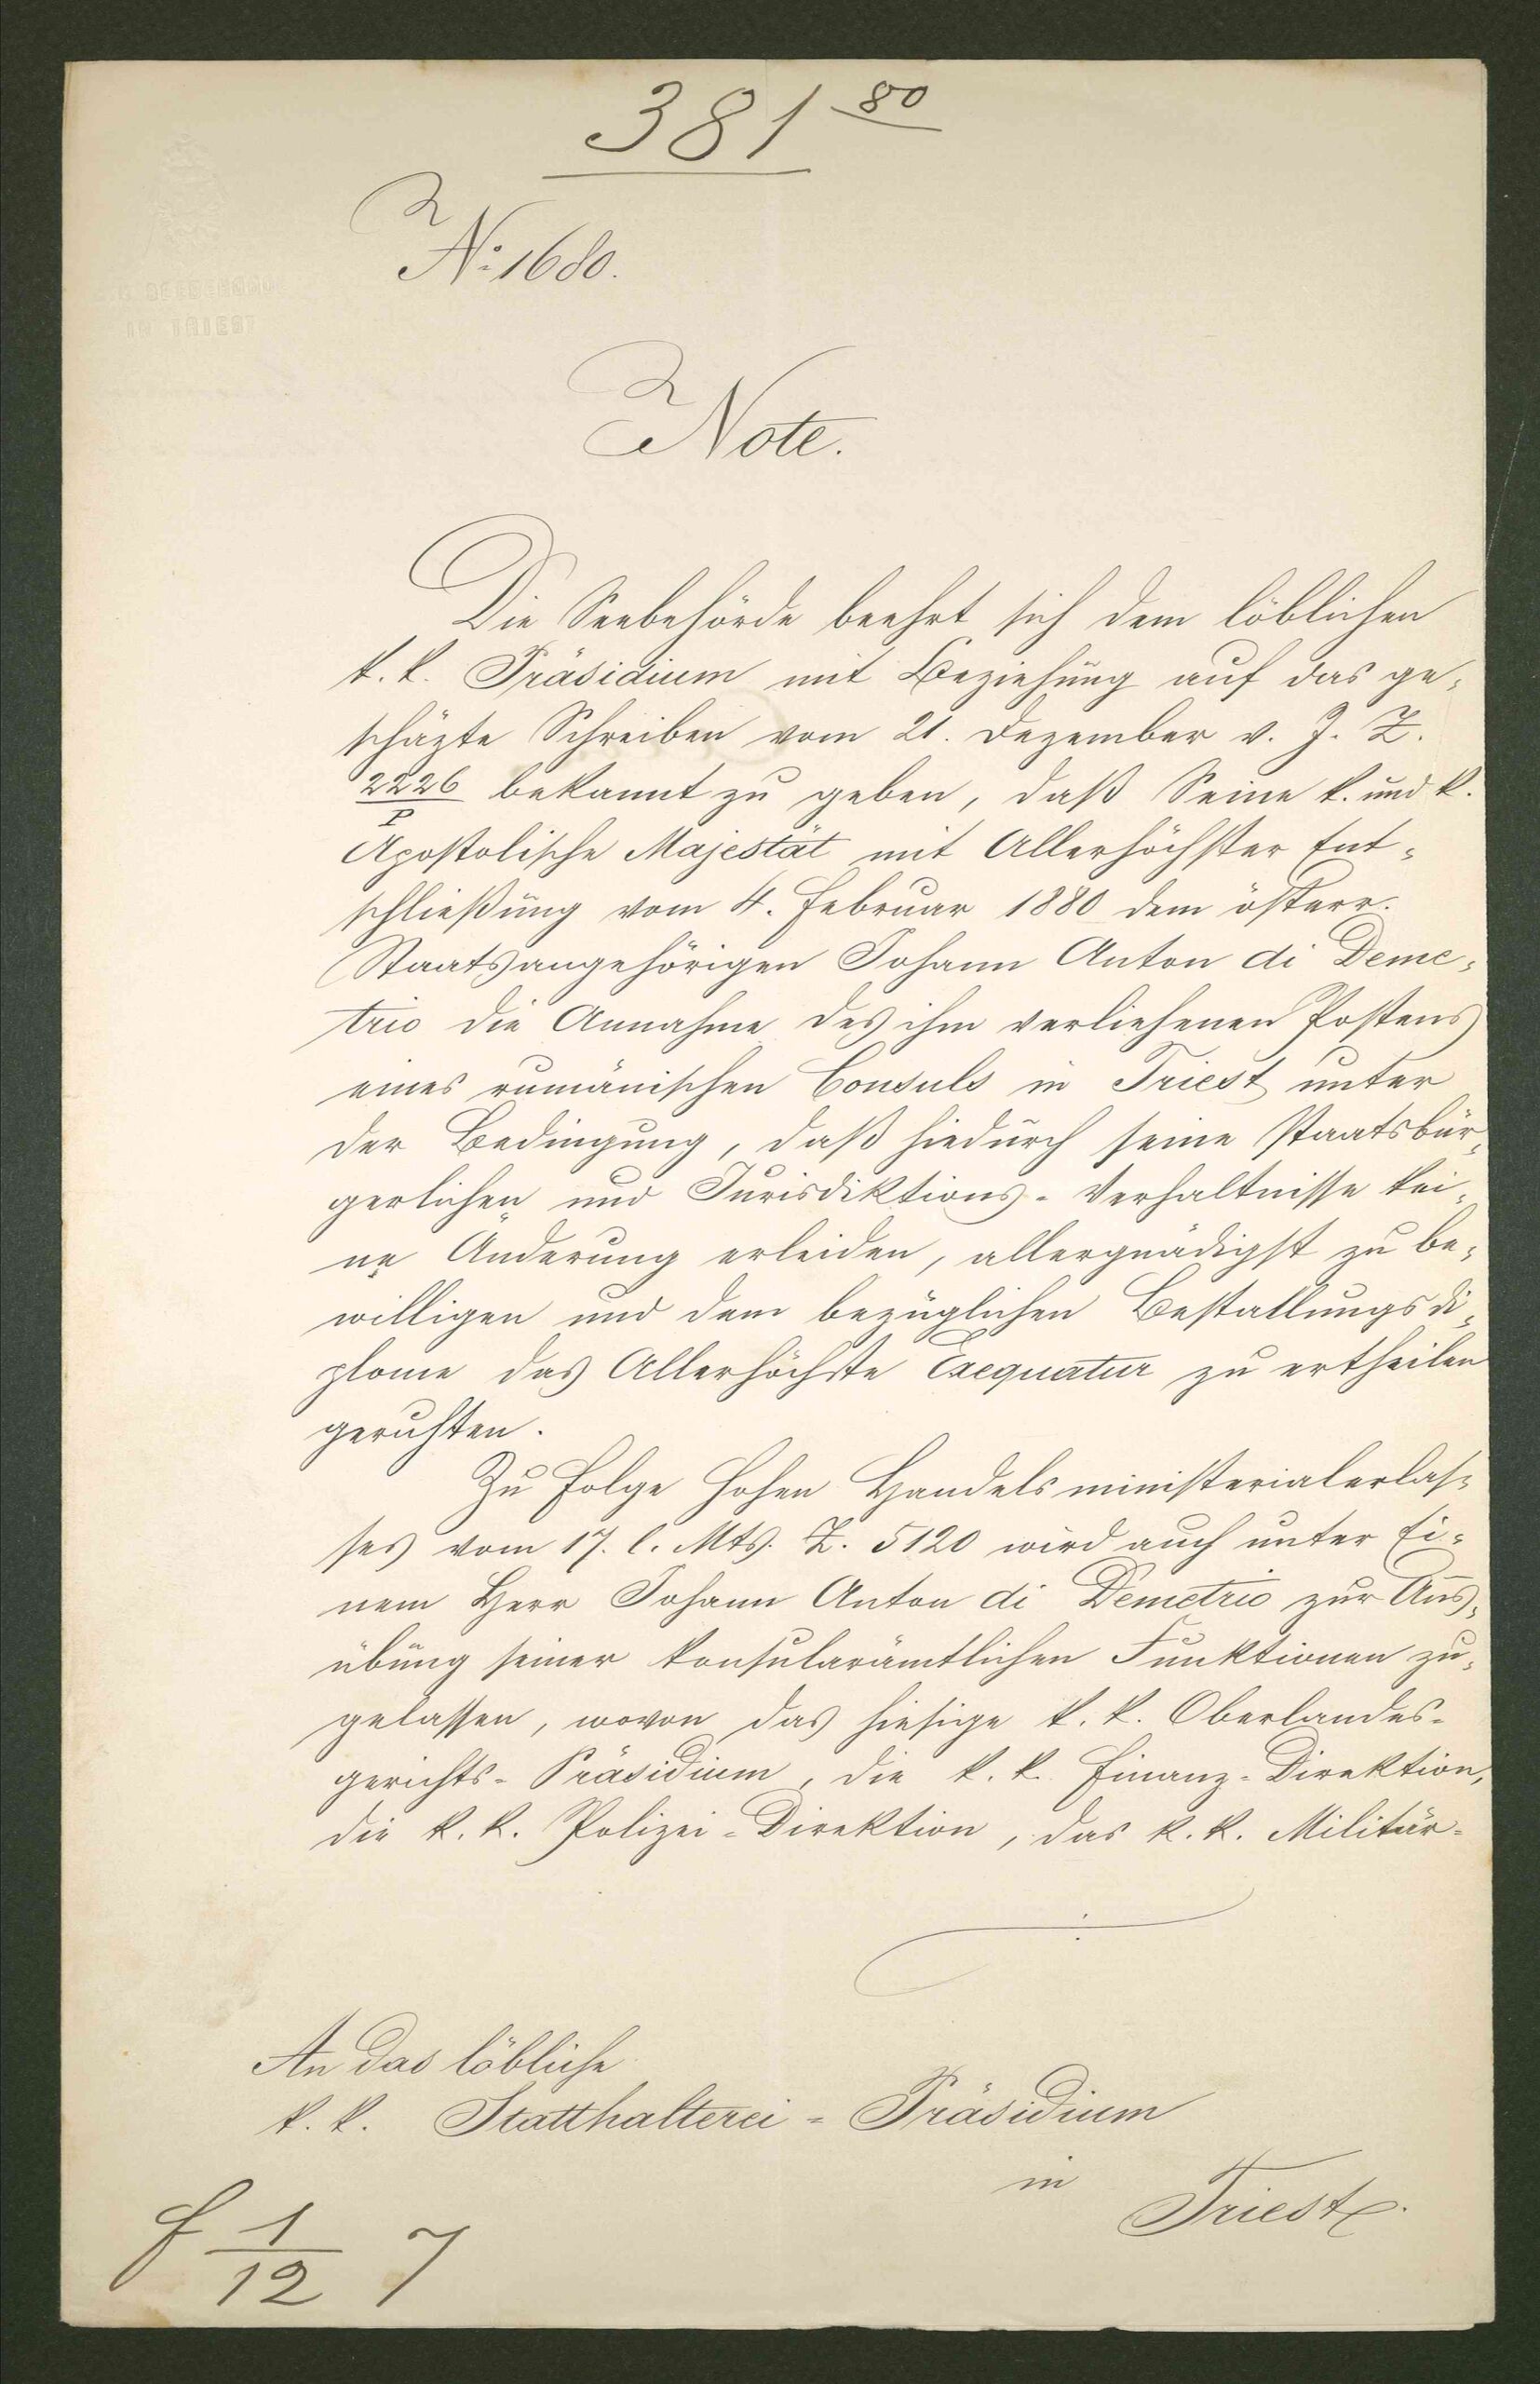 381 80
K. K. SEEBEHÖRDE
IN TRIEST
No: 1680.
Note.
Die Seebehörde beehrt sich dem löblichen
k. k. Präsidium mit Beziehung auf das ge-
schäzte Schreiben vom 21. Dezember v. J. Z.
2226/P bekannt zu geben, daß Seine k. und k.
Apostolische Majestät mit Allerhöchster Ent-
schließung vom 4. Februar 1880 dem österr.
Staatsangehörigen Johann Anton di Deme-
trio die Annahme des ihm verliehenen Postens
eines rumänischen Consuls in Triest unter
der Bedingung, daß hiedurch seine Staatsbür-
gerlichen und Jurisdiktions-Verhältnisse kei-
ne Änderung erleiden, allergnädigst zu be-
willigen und dem bezüglichen Bestallungsdi-
plome das Allerhöchste Exequatur zu ertheilen
geruhten.
Zu Folge hohen Handelsministerialerlas-
ses vom 17. l. Mts. Z. 5120 wird auch unter Ei-
nem Herr Johann Anton di Demetrio zur Aus-
übung seiner konsularämtlichen Funktionen zu-
gelassen, wovon das hiesige k. k. Oberlandes-
gerichts-Präsidium, die k. k. Finanz-Direktion,
die k. k. Polizei-Direktion, das k. k. Militär-
An das löbliche
k. k. Statthalterei-Präsidium
in
Triest.
f 1/12 7